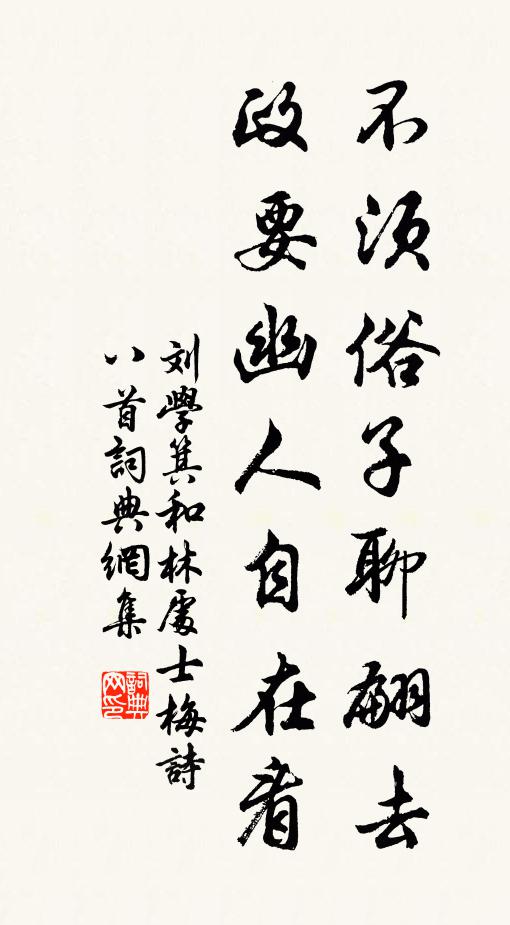 不須俗子聊翩去
政要幽人自在看
刘學箕和林處士梅詩
八首詞典網集
詞典网印